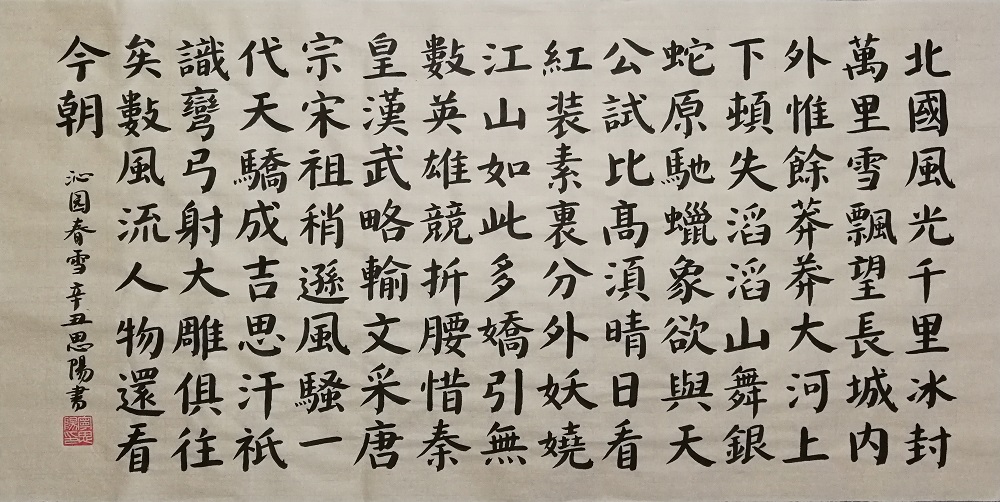 北國風光千里冰封
萬里雪飄望長城内
外惟餘莽莽大河上
下頓失滔滔山舞銀
蛇原馳蠟象欲與天
公試比髙湏晴日看
紅装素裏分外妖嬈
江山如此多嬌引無
數英雄競折腰惜秦
皇漢武略輸文采唐
宗宋祖稍遜風騷一
代天驕成吉思汗祇
識彎弓射大雕俱往
矣數風流人物還看
今朝
沁园春雪辛丑思陽書